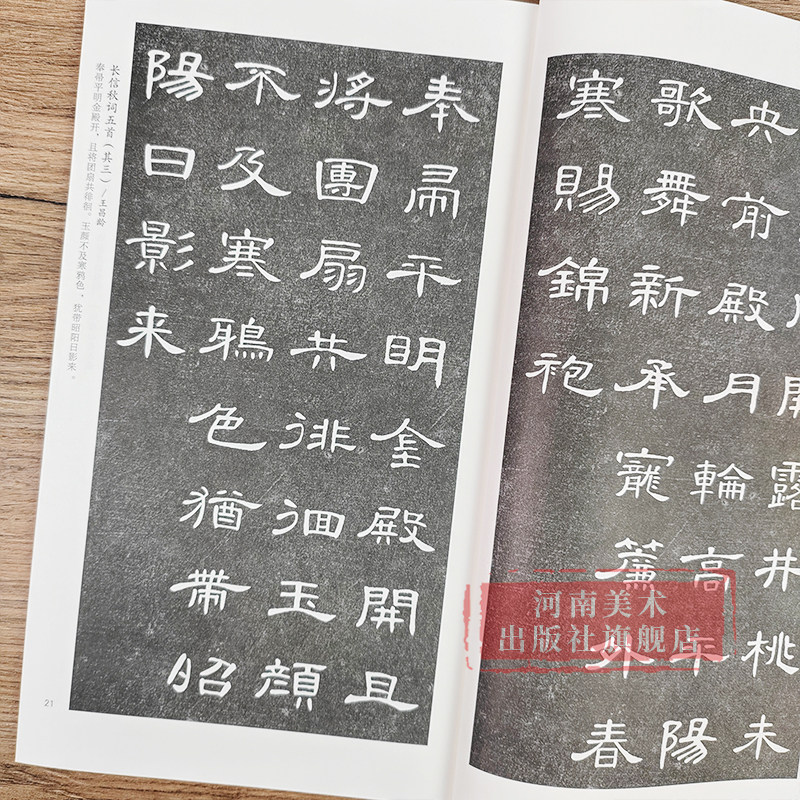 開露井桃未
央前殿月輪高平陽
歌舞新承寵簾外春
寒賜錦袍
奉帚平明金殿開且
將團扇共徘徊玉顔
不及寒鴉色猶帶昭
陽日影来
长信秋词五首（其三）/王昌龄
奉帚平明金殿开，且将团扇共徘徊。玉颜不及寒鸦色，犹带昭阳日影来。
21
河南美术
出版社旗舰店